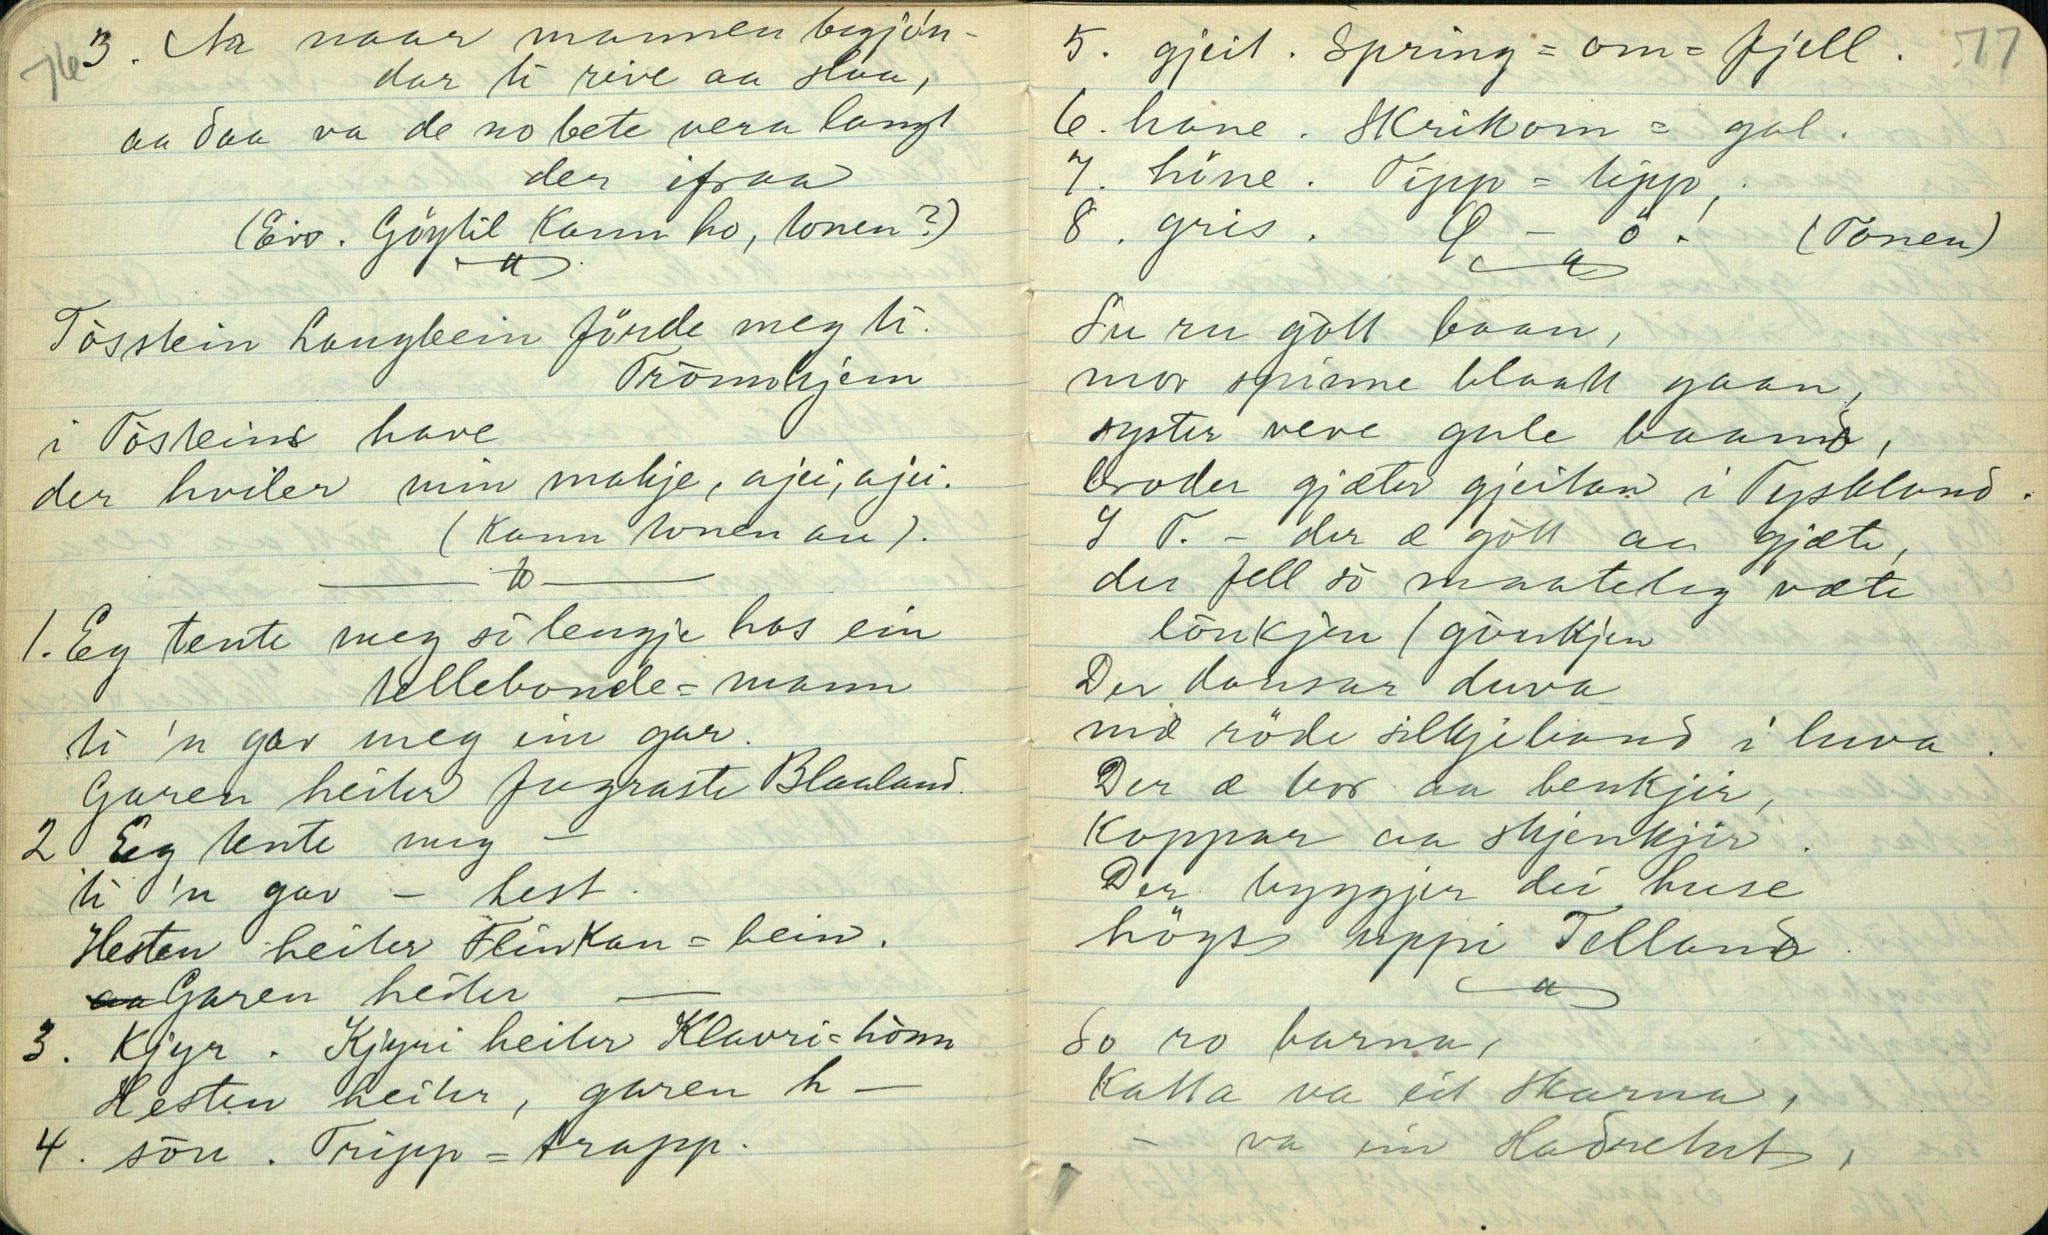 76
3. Aa naar mannen begjön-
dar ti rive aa slaa,
aa daa va de no bete vera langt
der ifraa
(Eiv. Göytil kann ho, tonen?)
Tòsstein Langbein förde meg ti
Tròmhjem
i Tòsteins have
der hviler min makje, ajei, ajei.
(Kann tonen au).
1. Eg tente meg sò lengje hos ein
tellebonde=mann
ti 'n gav meg ein gar.
Garen heiter fagraste Blaaland.
2 Eg tente meg —
ti 'n gav — hest.
Hesten heiter Flinkan=bein.
Garen heiter —
3. Kjyr. Kjyri heiter Klavri=hònn
Hesten heiter, garen h —
4. sòu. Tripp=trapp.
77
5. gjeit. Spring=om=fjell.
6. hane. Skrikom=gal.
7. höne. Tipp=tipp,
8. gris. Ö — ö! (Tonen)
Su ru gòtt baan,
mor spinne blaatt gaan,
syster veve gule baand,
broder gjæter gjeitan i Tyskland.
I T. — der æ gòtt aa gjæte,
der fell sò maateleg væte
lònkjen (gònkjen
Der dansar duva
mæ röde silkjeband i luva.
Der æ bor aa benkjir,
Koppar aa skjenkjir.
Der byggjer dei huse
högt uppi Telland.
So ro barna,
Katta va eit skarna,
— va ein